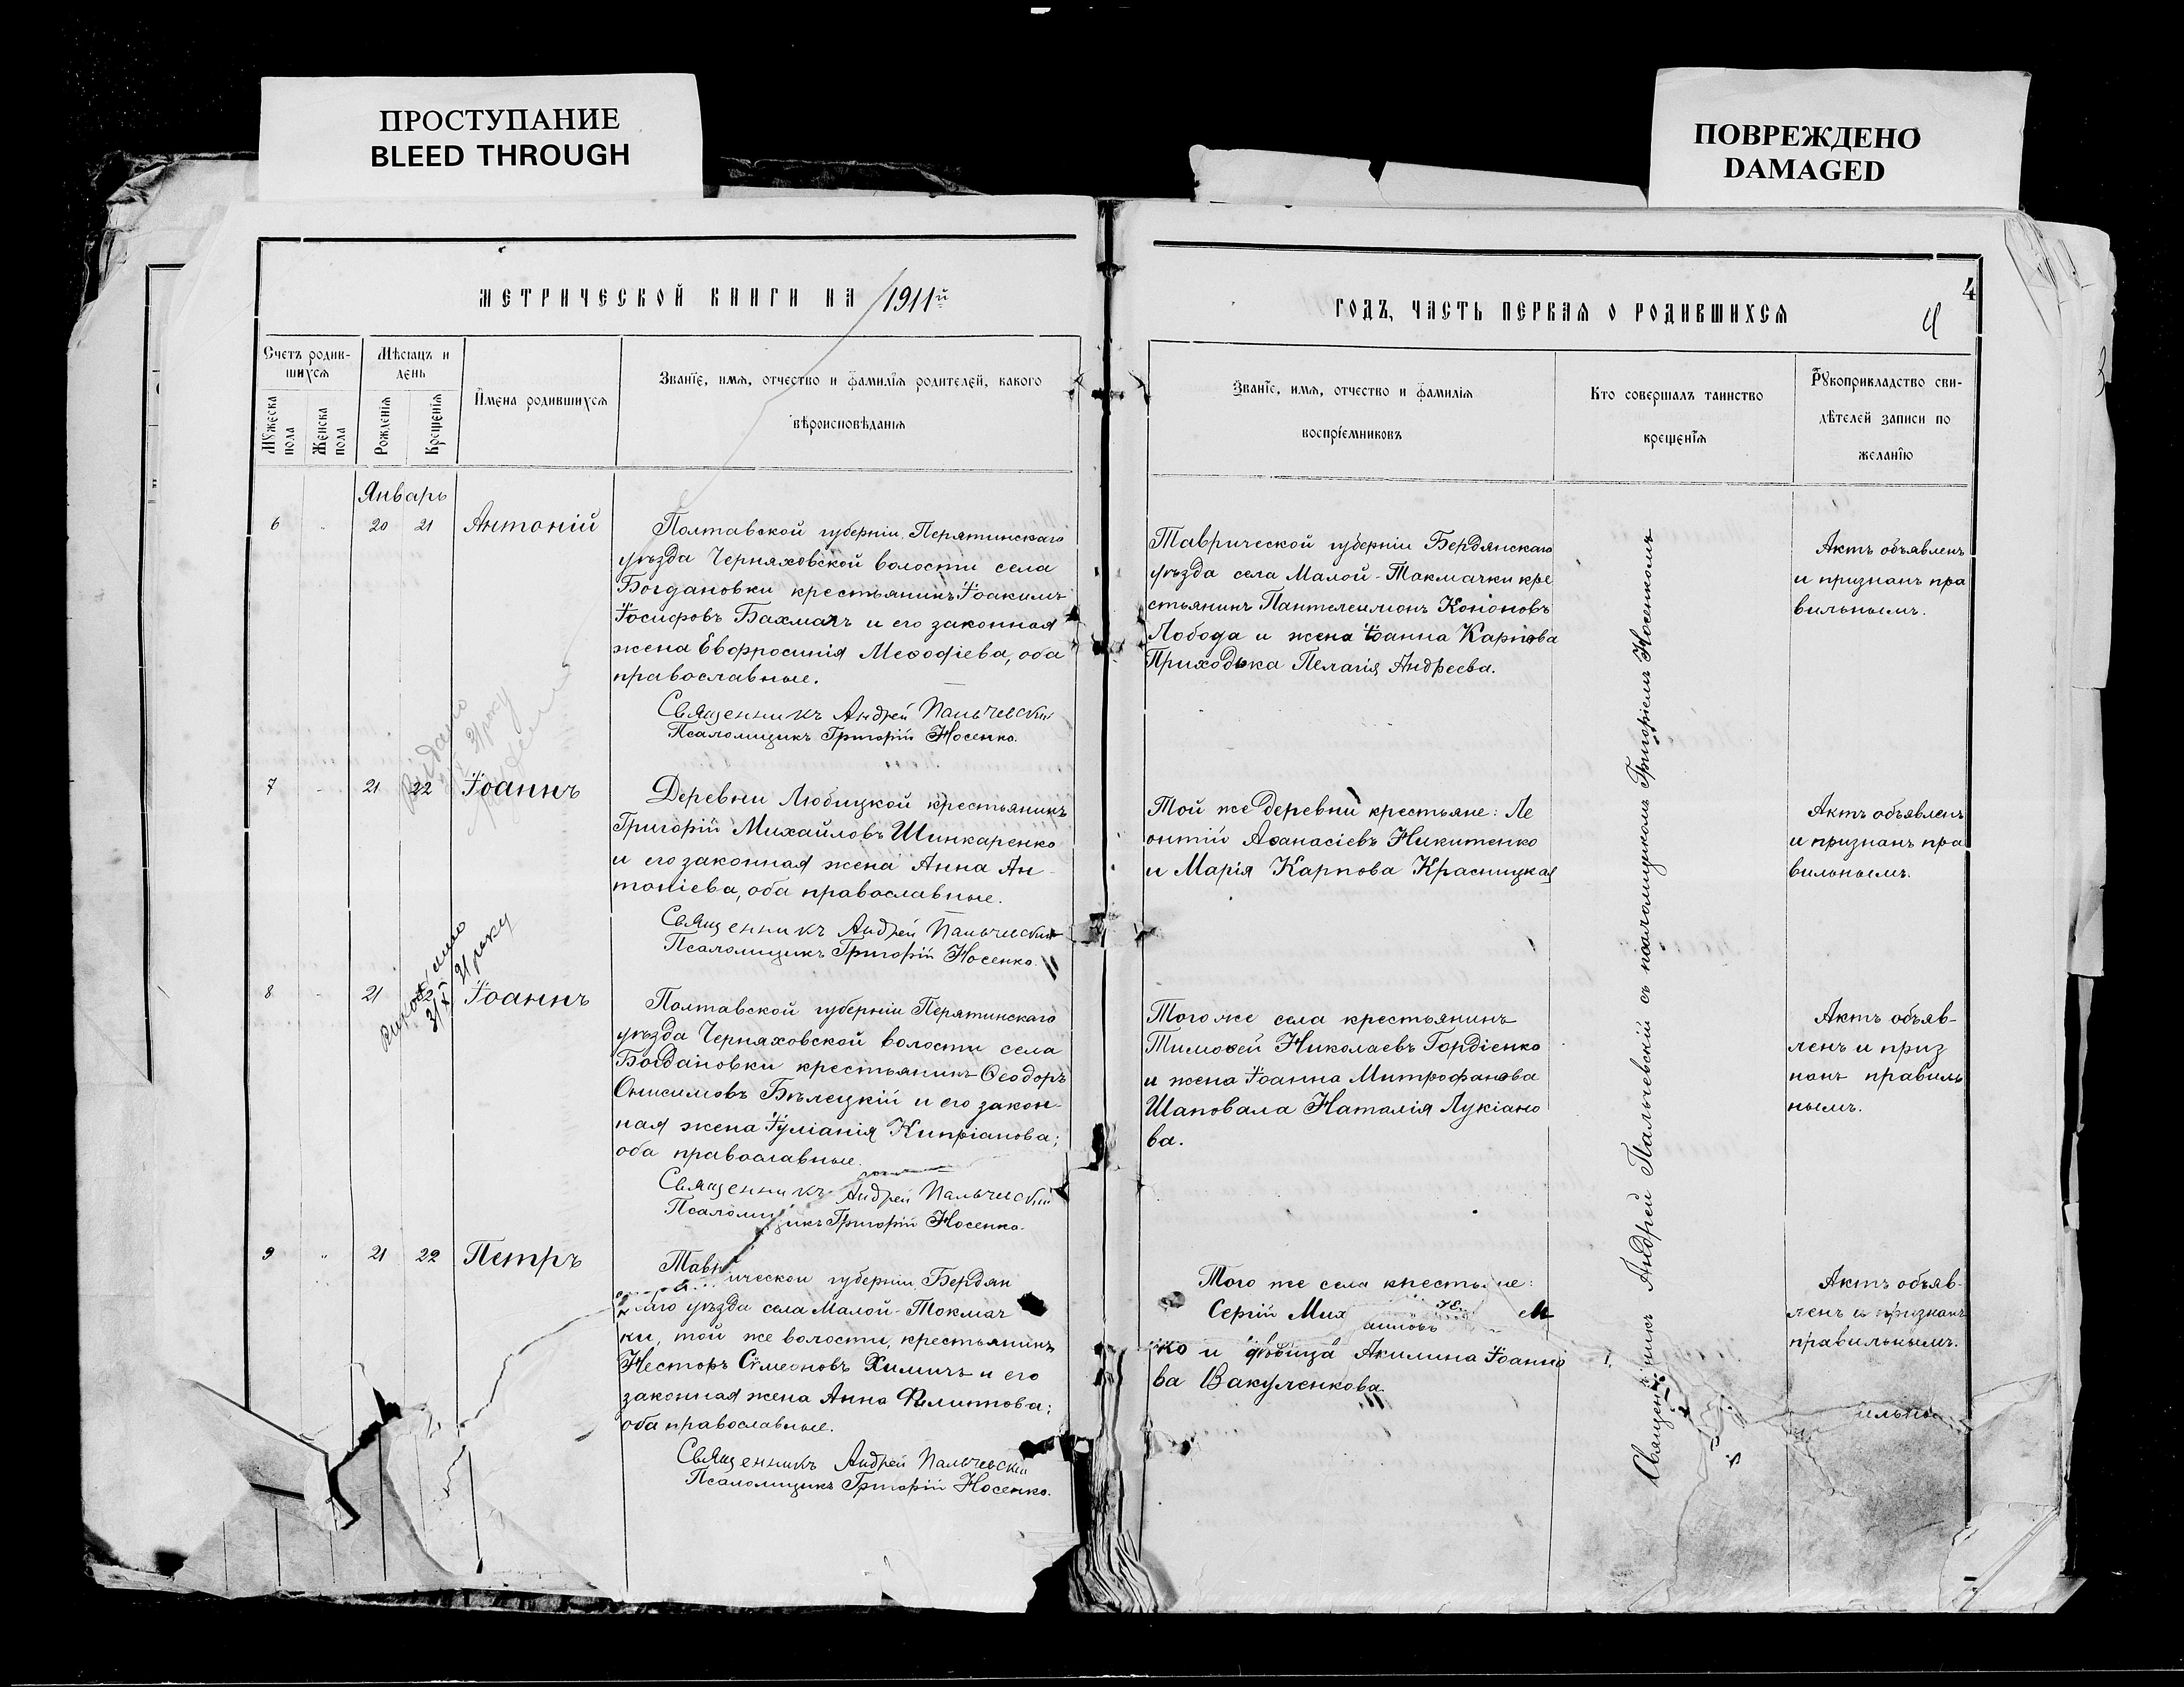 ПРОСТУПАНИЕ
BLEED THROUGH
ПОВРЕЖДЕНО
DAMAGED
МЕТРИЧЕСКОЙ КНИГИ НА 1911й
Счетъ родив-
шихся
Мѣсяцъ и
день
Мужеска
пола
Женска
пола
Рожденія
Крещенія
Имена родившихся
Званіе, имя, отчество и фамилія родителей, какого
вѣроисповѣданія
Январь
6 " 20 21 Антоній
Полтавской губерніи Пирятинскаго
уѣзда Черняховской волости села
Богдановки крестьянинъ Іоакимъ
Іосифовъ Бахмачъ и его законная
жена Евфросинія Меѳодіева, оба
православные.
Священникъ Андрей Пальчевскій
Псаломщикъ Григорій Носенко.
7 " 21 22 Іоаннъ
Деревни Любицкой крестьянинъ
Григорій Михайловъ Шинкаренко
и его законная жена Анна Ан-
тоніева, оба православные.
Священникъ Андрей Пальчевскій
Псаломщикъ Григорій Носенко.
8 " 21 22 Іоаннъ
31 року
Полтавской губерніи Пирятинскаго
уѣзда Черняховской волости села
Богдановки крестьянинъ Ѳеодоръ
Онисимовъ Бѣлецкій и его закон-
ная жена Іуліанія Кипріанова;
оба православные.
Священникъ Андрей Пальчевскій
Псаломщикъ Григорій Носенко.
9 " 21 22 Петръ
Таврической губерніи Бердян
скаго уѣзда села Малой-Токмач
ки, той же волости, крестьянинъ
Несторъ Сѵмеоновъ Химичъ и его
законная жена Анна Филиппова;
оба православные.
Священникъ Андрей Пальчевскій
Псаломщикъ Григорій Носенко.
ГОДЪ, ЧАСТЬ ПЕРВАЯ О РОДИВШИХСЯ
4
4
3
Званіе, имя, отчество и фамилія
воспріемниковъ
Кто совершалъ таинство
крещенія
Рукоприкладство сви-
дѣтелей записи по
желанію
Таврической губерніи Бердянскаго
уѣзда села Малой-Такмачки кре
стьянинъ Пантелеимонъ Кононовъ
Лобода и жена Іоанна Карпова
Приходька Пелагія Андреева.
Актъ объявленъ
и признанъ пра
вильнымъ.
Той же деревни крестьяне: Ле
онтій Аѳанасіевъ Никитенко
и Марія Карпова Красницкая
Актъ объявленъ
и признанъ пра
вильнымъ.
Того же села крестьянинъ
Тимоѳей Николаевъ Гордіенко
и жена Іоанна Митрофанова
Шаповала Наталія Лукіано
ва.
Актъ объяв-
ленъ и приз
нанъ правиль
нымъ.
Того же села крестьяне:
Сергій Мих аиловъ
ко и дѣвица Акилина Іоанно
ва Вакуленкова.
Актъ объяв-
ленъ и признанъ
правильнымъ.
ильно
Священникъ Андрей Пальчевскій съ псаломщикомъ Григоріемъ Носенкомъ